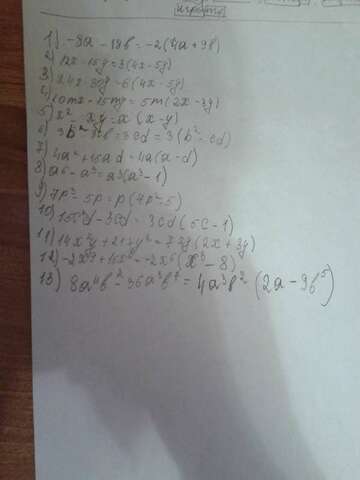 1) -8a - 18b = -2(4a + 9b)
2) 12x - 15y = 3(4x - 5y)
3) x4x - 30y = 6(4x - 5y)
4) 10mx - 15my = 5m(2x - 3y)
5) x² - xy = x(x - y)
6) 3b² - 3cb = 3cd = 3(b² - cd)
7) 4a² + 16ad = 4a(a - d)
8) a⁶ - a³ = a³(a³ - 1)
9) 7p³ - 5p = p(7p² - 5)
10) 15c²d - 3cd = 3cd(5c - 1)
11) 14x²y + 21xy² = 7xy(2x + 3y)
12) -2x⁹ + 16x⁶ = -2x⁶(x³ - 8)
13) 8a⁴b² - 36a³b⁷ = 4a³b²(2a - 9b⁵)